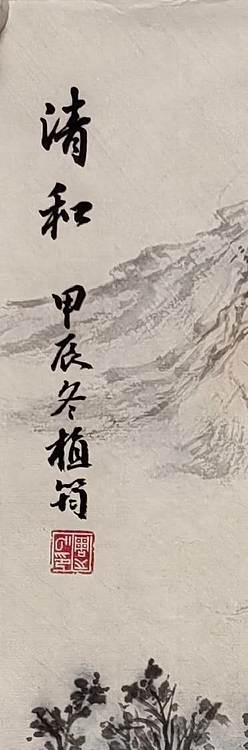 清和
甲辰冬植筠